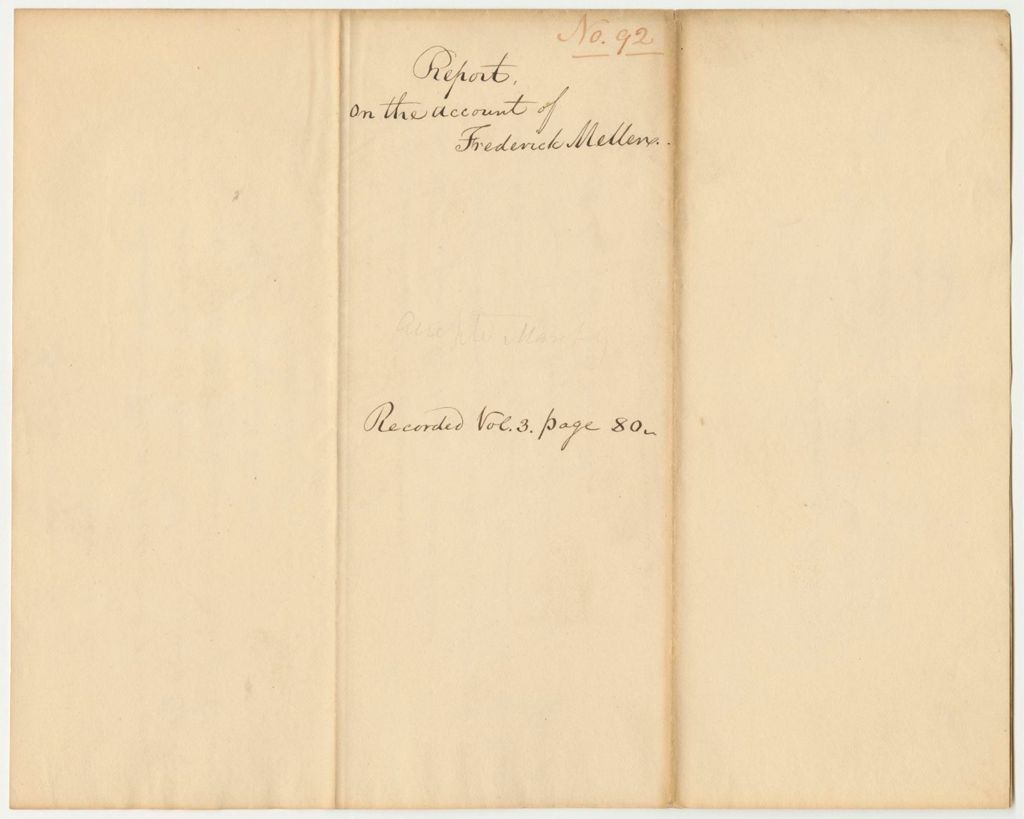 No. 92
Report,
on the account of
Frederick Mellen.
Recorded Vol. 3. page 80